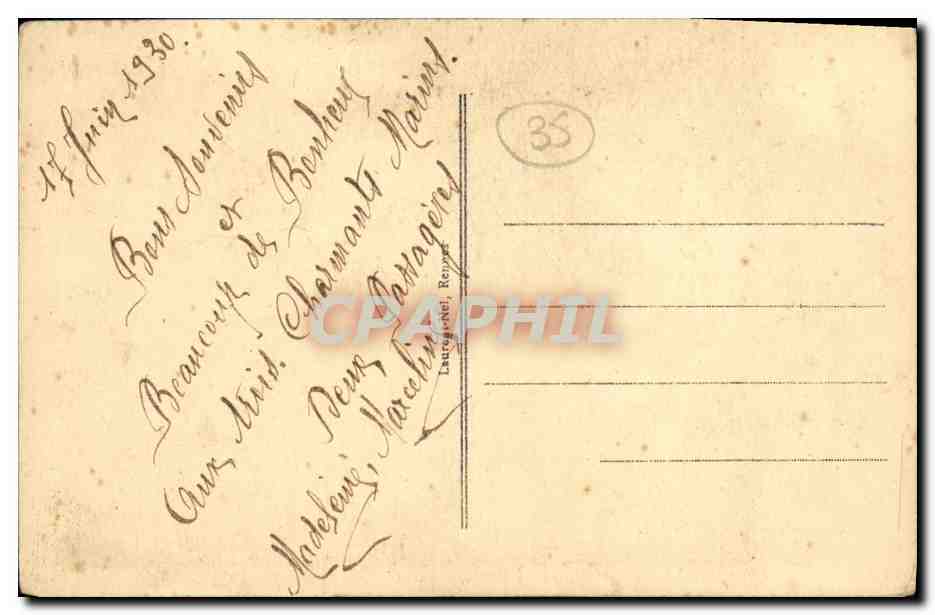 17 Juin 1930.
Bons Souvenirs
et
Beaucoup de Bonheur
Aux trois. Charmants Marins.
Deux Passagères
Madeleine, Marceline
35
Laurent-Nel, Rennes
CPAPHIL